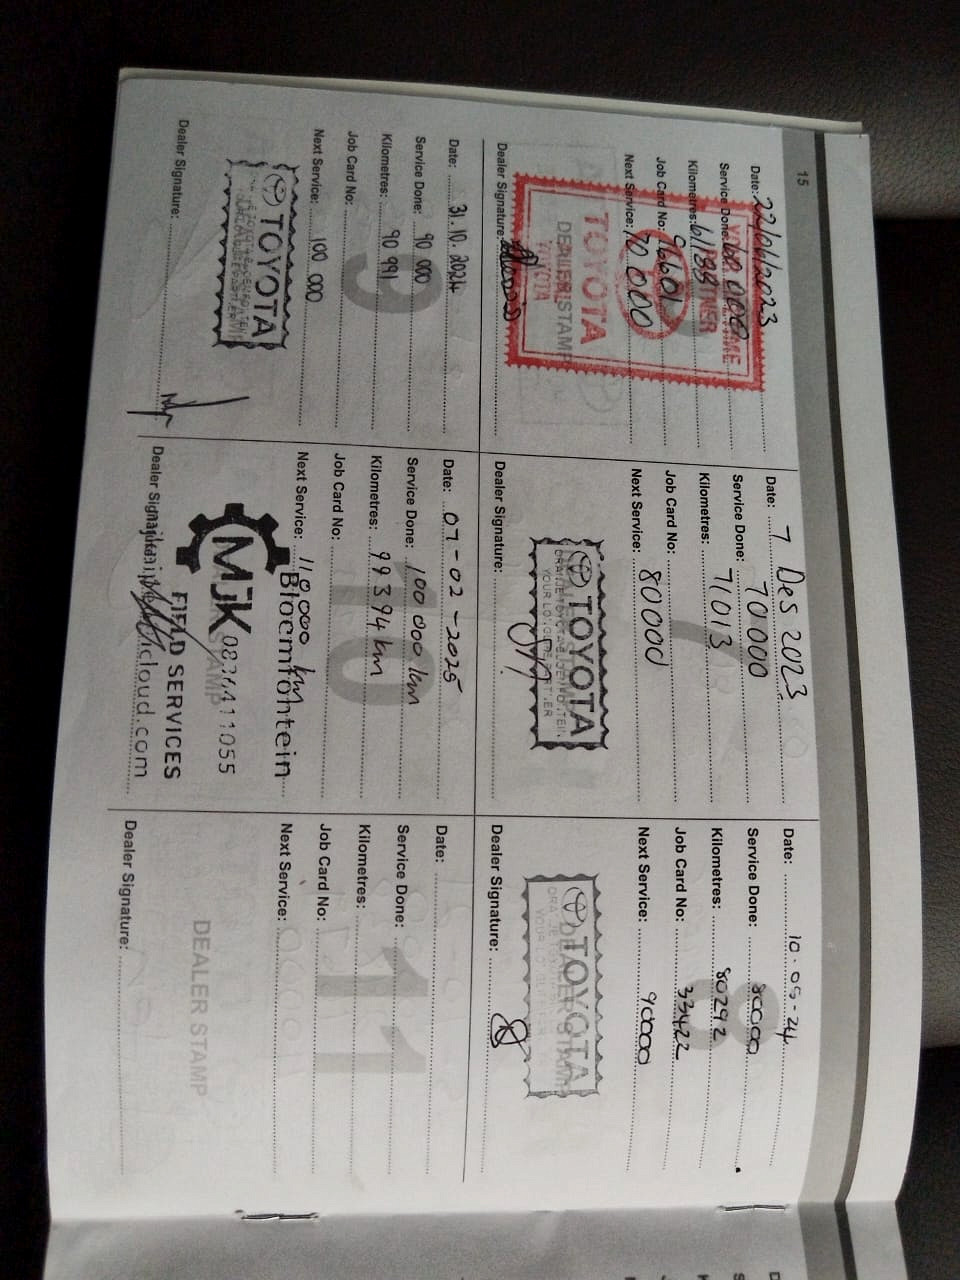 15
Date: 22/06/2023
Service Done: 60 000
Kilometres: 61188
Job Card No:
Next Service: 70 000
TOYOTA
DEALER STAMP
TOYOTA
Dealer Signature:
Date: 7 Des 2023
Service Done: 70 000
Kilometres: 71013
Job Card No:
Next Service: 80000
TOYOTA
Dealer Signature:
Date: 10-05-24
Service Done: 80000
Kilometres: 80292
Job Card No: 33422
Next Service: 90000
TOYOTA
Dealer Signature:
9
Date: 31.10.2024
Service Done: 90 000
Kilometres: 90 991
Job Card No:
Next Service: 100 000
TOYOTA
Dealer Signature:
10
Date: 07-02-2025
Service Done: 100 000 km
Kilometres: 99394 km
Job Card No:
Next Service: 110000 km
Bloemfontein
MJK
FIELD SERVICES
icloud.com
Dealer Signature:
11
Date:
Service Done:
Kilometres:
Job Card No:
Next Service:
DEALER STAMP
Dealer Signature: